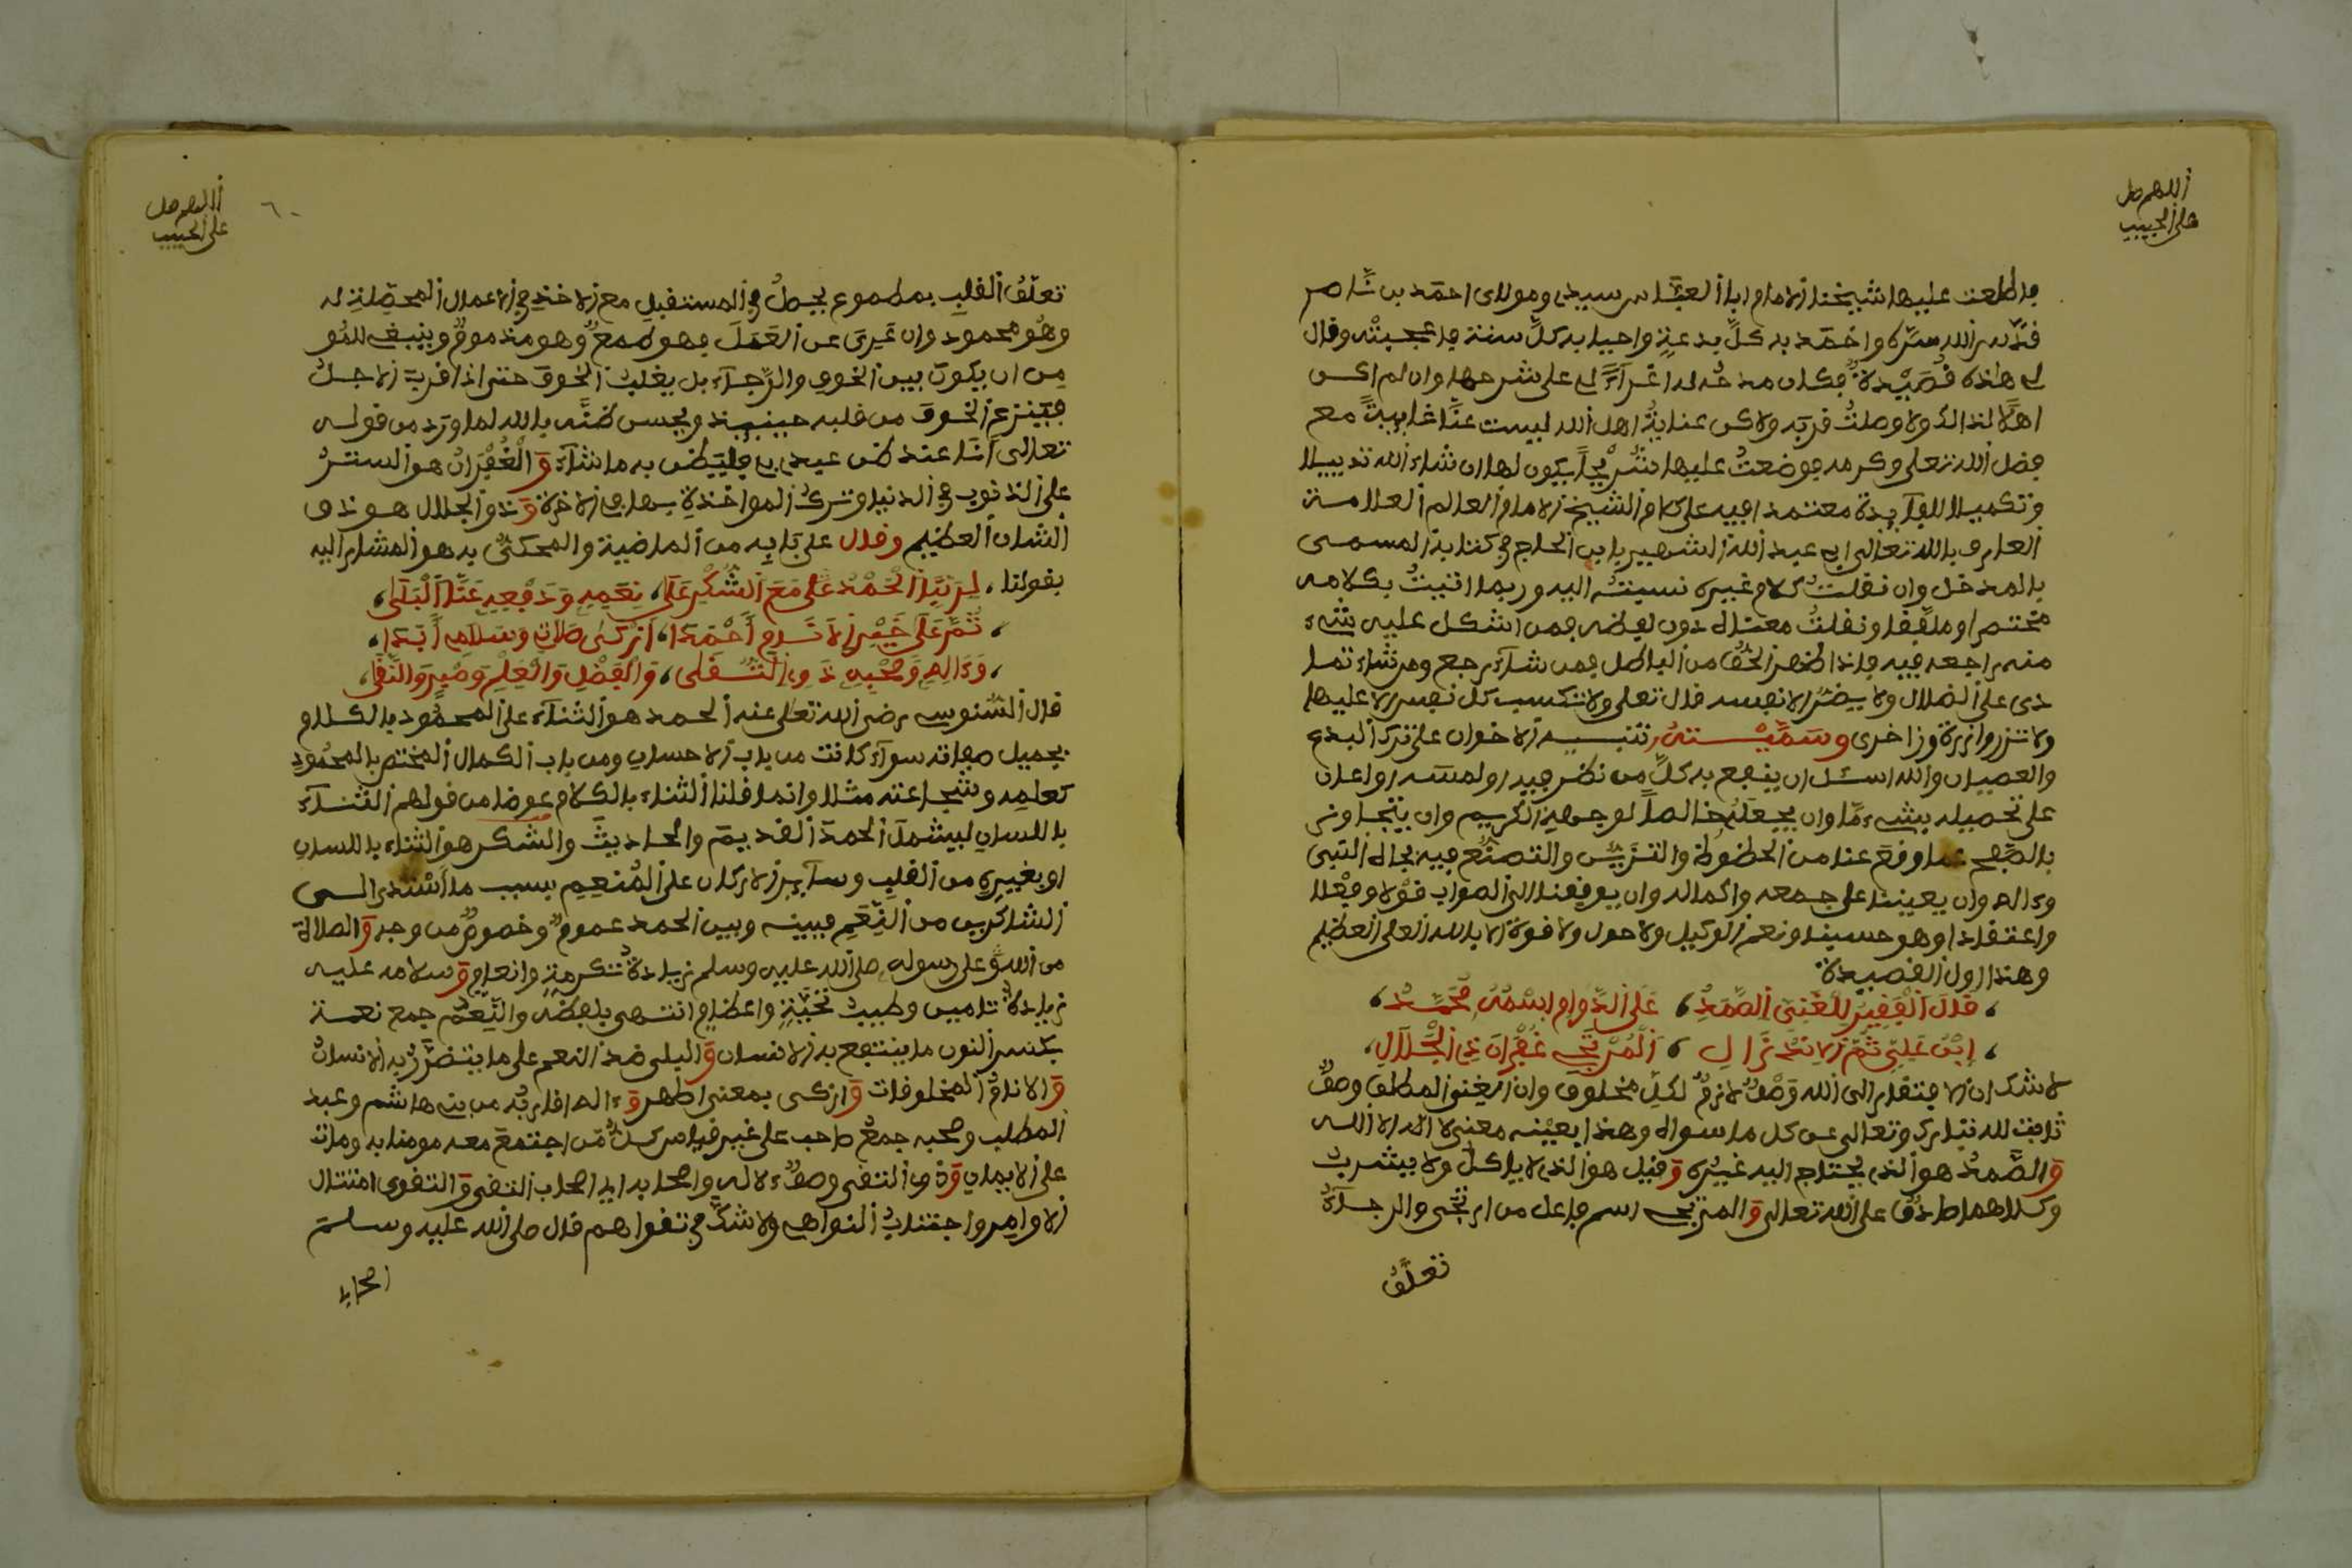 اللهم صل
على الحبيب
فاطلعت عليها شيخنا الامام ابا العباس سيدي ومولاي احمد بن ناصر
قدس الله سره واخمد به كل بدعة واحيا به كل سنة فاعجبته وقال
لي هاذه قصيدة فكان مدحه لها اغرآء لي على شرحها وان لم اكن
اهلا لذالك ولا وصلت قربه ولاكن عناية اهل الله ليست عنا غايبة مع
فضل الله تعلى وكرمه فوضعت عليها شرحا يكون لها ان شاء الله تذييلا
وتكميلا للفآيدة معتمدا فيه على كلام الشيخ الامام العالم العلامة
العارف بالله تعالى ابي عبد الله الشهير بابن الحاج في كتابه المسمى
بالمدخل وان نقلت كلام غيره نسبته اليه وربما اتيت بكلامه
مختصرا وملفقا ونقلت معناه دون لفظه فمن اشكل عليه شيء
منه راجعه فيه فاذا ظهر الحق من الباطل فمن شآء رجع ومن شاء تما
دى على الضلال ولا يضر الا نفسه قال تعلى ولا تكسب كل نفس الا عليها
ولا تزر وازرة وزر اخرى وسميته تنبيه الاخوان على ترك البدع
والعصيان والله اسئل ان ينفع به كل من نظر فيه او لمسه او اعان
على تحصيله بشيء ما وان يجعله خالصا لوجهه الكريم وان يتجاوز
بالصفح عما وقع عنا من الحظوظ والتزين والتصنع فيه بجاه النبي
وءاله وان يعيننا على جمعه واكماله وان يوفقنا الى الصواب قولا وفعلا
واعتقادا وهو حسبنا ونعم الوكيل ولا حول ولا قوة الا بالله العلي العظيم
وهذا اول القصيدة
قال الفقير للغني الصمد ، على الدوام ابن اسمه محمد ،
ابن علي ثم الانـزال ، المرتجي غفران ذي الجلال ،
لا شك ان الافتقار الى الله وصف لازم لكل مخلوق وان الغنى المطلق وصف
ثابت لله تبارك وتعالى عن كل ما سواه وهذا بعينه معنى لا اله الا الله
والصمد هو الذي يحتاج اليه غيره وقيل هو الذي لا ياكل ولا يشرب
وكلاهما صادق على الله تعالى والمرتجي اسم فاعل من ارتجى والرجآء
تعلق
اللهم صل
على الحبيب
٦٠
تعلق القلب بمطموع يحصل في المستقبل مع الاخذ في الاعمال المحصلة له
وهو محمود وان عري عن العمل فهو طمع وهو مذموم وينبغي للمو
من ان يكون بين الخوف والرجآء بل يغلب الخوف حتى اذا قرب الاجل
فينزع الخوف من قلبه حينيذ ويحسن ظنه بالله لما ورد من قوله
تعالى انا عند ظن عبدي بي فليظن به ما شآء والغفران هو الستر
على الذنوب في الدنيا وترك المواخذة بها في الاخرة وذو الجلال هو ذو
الشان العظيم وقال على بابه من الماضية والمحكي به هو المشار اليه
بقولنا ، لربنا الحمد على مع الشكر على ، نعمه ودفعه عنا البلى ،
، ثم على خير الانام احمدا ، ازكى صلاة وسلام ابدا ،
، وءاله وصحبه ذوي التقى ، والفضل والعلم وصبر والنقى ،
قال السنوسي رضي الله تعلى عنه الحمد هو الثنآء على المحمود بالكلام
بجميل صفاته سوآء كانت من باب الاحسان ومن باب الكمال المختص بالمحمود
كعلمه وشجاعته مثلا وانما قلنا الثناء بالكلام عوضا من قولهم الثنآء
باللسان ليشمل الحمد القديم والحاديث والشكر هو الثناء باللسان
او بغيره من القلب وسآير الاركان على المنعم بسبب ما اسدى الى
الشاكرين من النعم فبينه وبين الحمد عموم وخصوص من وجه والصلاة
من الله على رسوله صلى الله عليه وسلم زيادة تكرمة وانعام وسلامه عليه
زيادة تامين وطيب تحية واعظام انتهى بلفظه والنعم جمع نعمة
بكسر النون ما ينتفع به الانسان والبلى ضد النعم على ما يتضرر به الانسان
والانام المخلوقات وازكى بمعنى اطهر وءاله اقاربه من بني هاشم وعبد
المطلب وصحبه جمع صاحب على غير قياس كل من اجتمع معه مومنا به ومات
على الايمان وذوي التقى وصف لاله واصحابه اي اصحاب التقى والتقوى امتثال
الاوامر واجتناب النواهي ولا شك في تقواهم قال صلى الله عليه وسلم
اصحابي